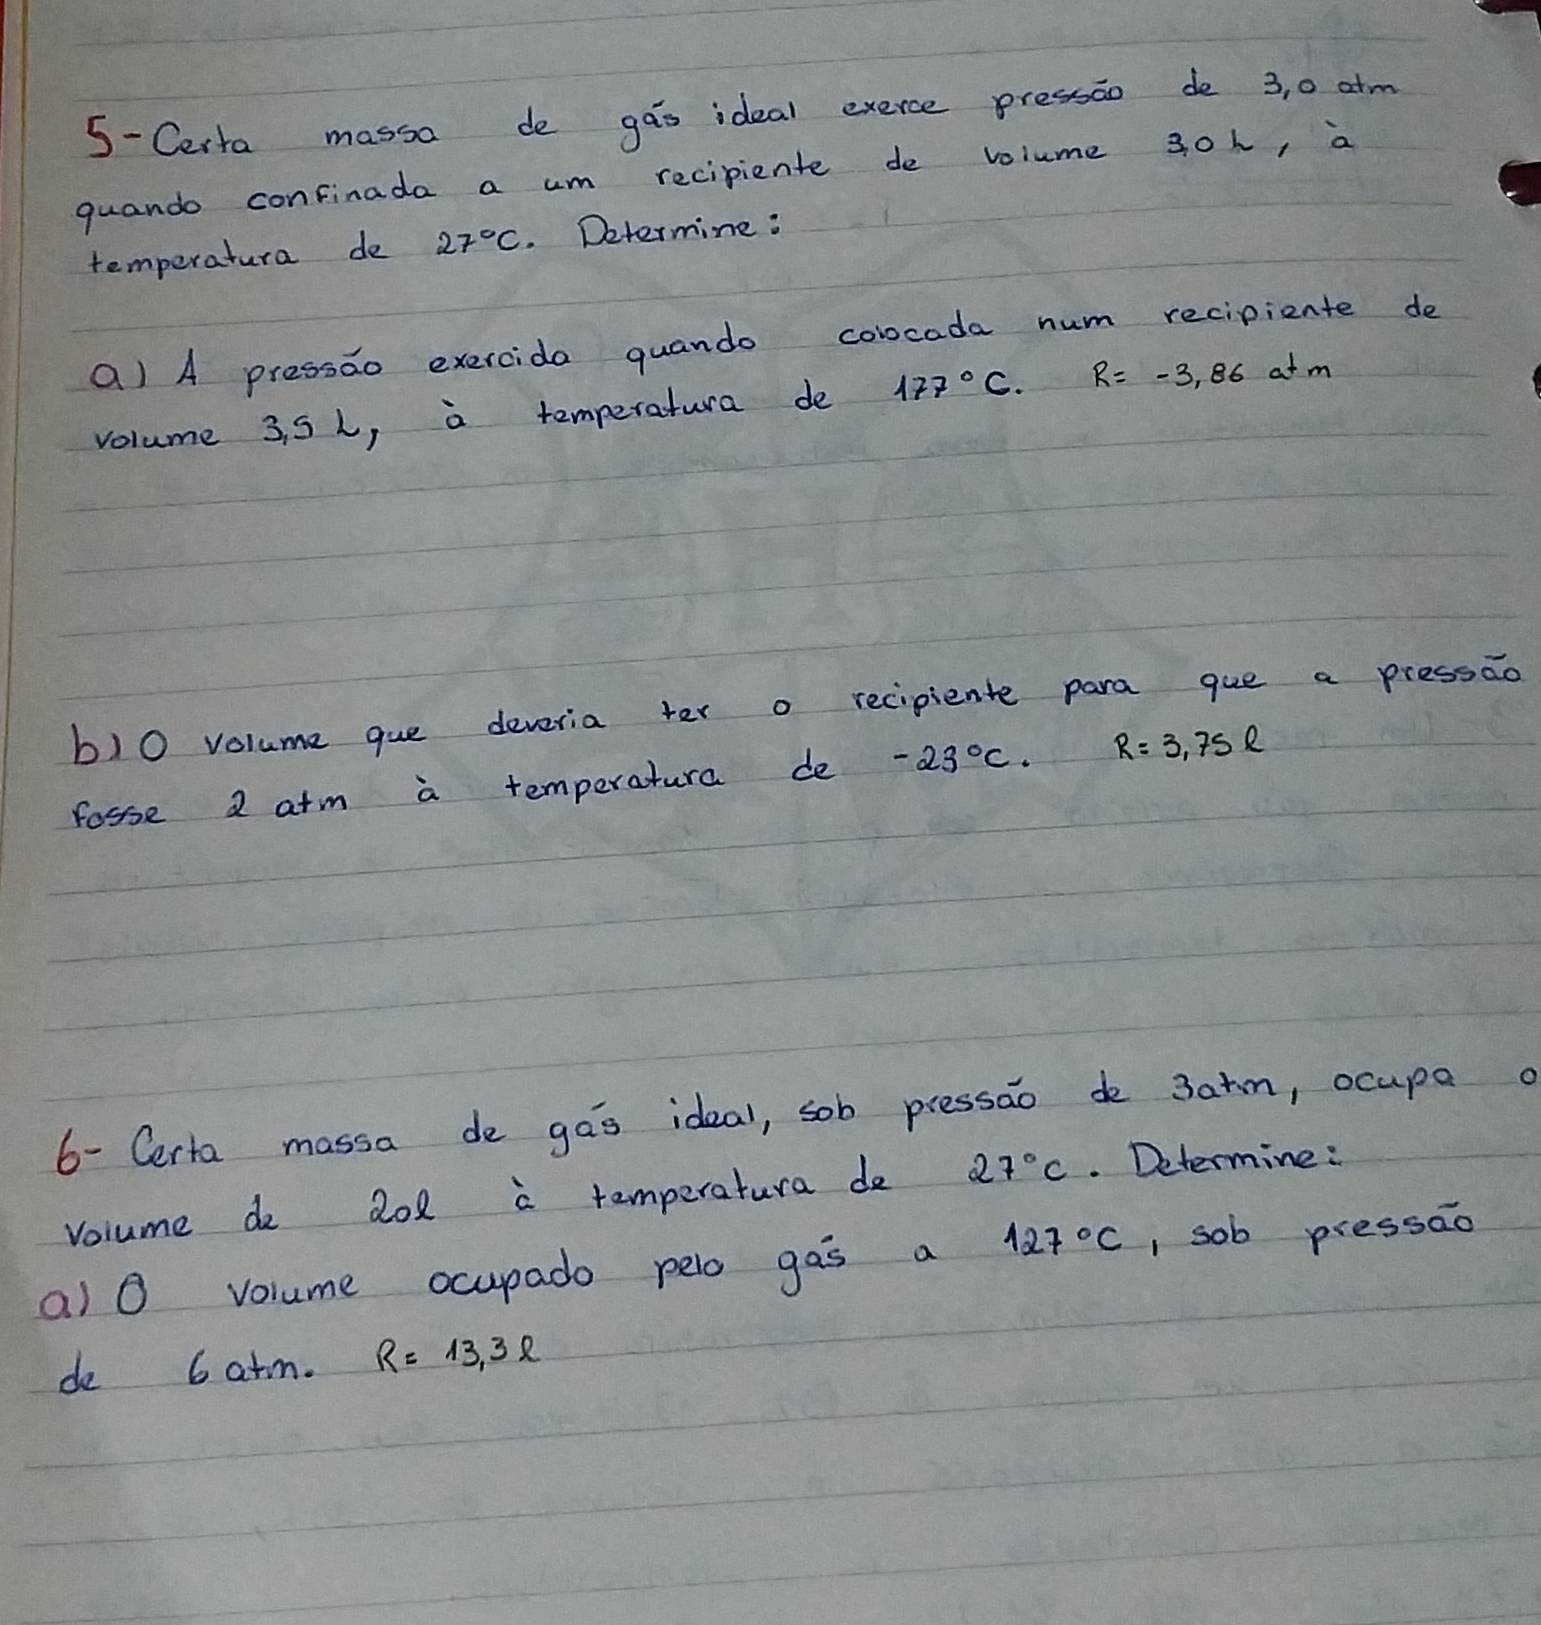 5- Certa massa de gás ideal exerce pressão de 3,0 atm
quando confinada a um recipiente de volume 3,0 L, à
temperatura de 27°C. Determine:
a) A pressão exercida quando colocada num recipiente de
volume 3,5 L, à temperatura de 177°C. R= -3,86 atm
b) O volume que deveria ter o recipiente para que a pressão
fosse 2 atm à temperatura de -23°C. R= 3,75 l
6- Certa massa de gás ideal, sob pressão de 3atm, ocupa o
volume de 20l à temperatura de 27°C. Determine:
a) O volume ocupado pelo gás a 127°C, sob pressão
de 6 atm. R= 13,3 l